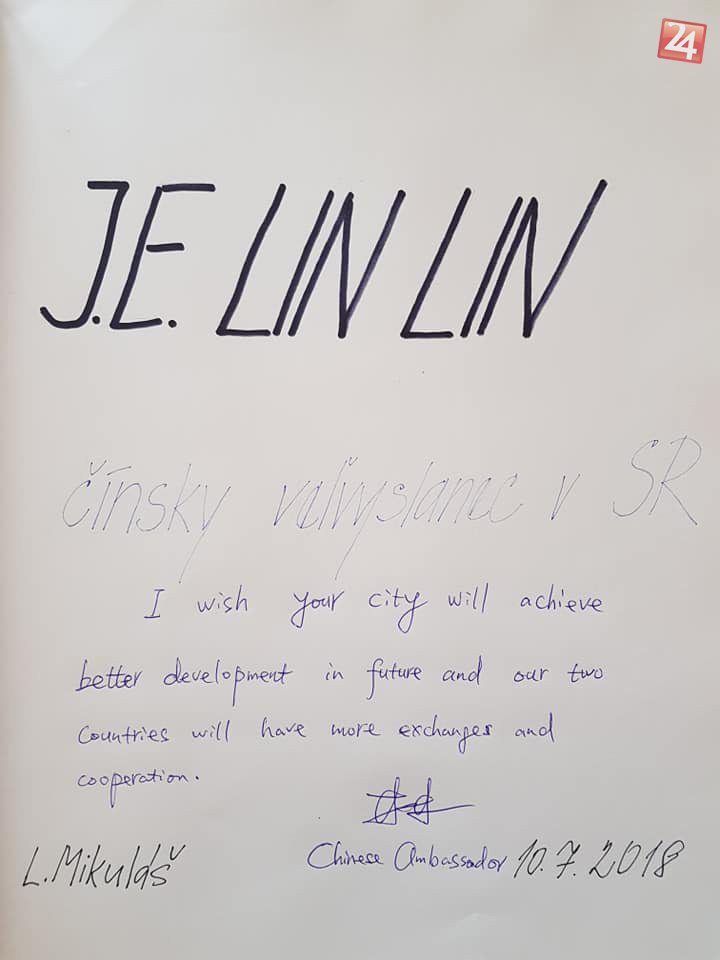 24
J.E. LIN LIN
čínsky veľvyslanec v SR
I wish your city will achieve
better development in future and our two
countries will have more exchanges and
cooperation.
L. Mikuláš
Chinese Ambassador 10.7.2018